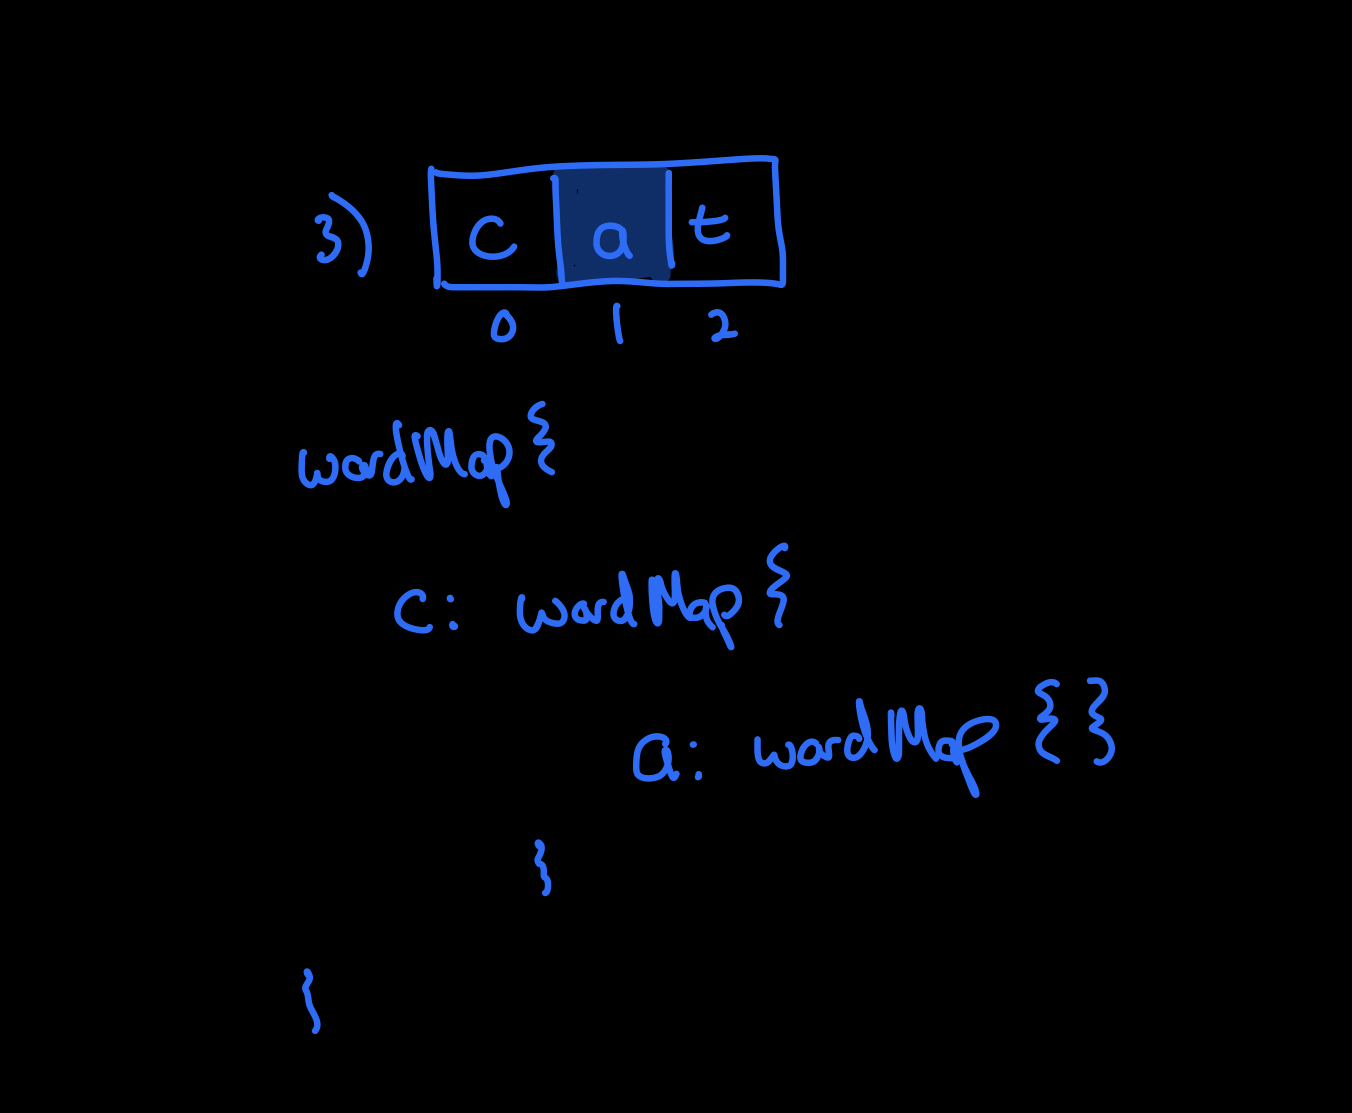 3) c a t
0 1 2
wordMap {
c: wordMap {
a: wordMap { }
}
}